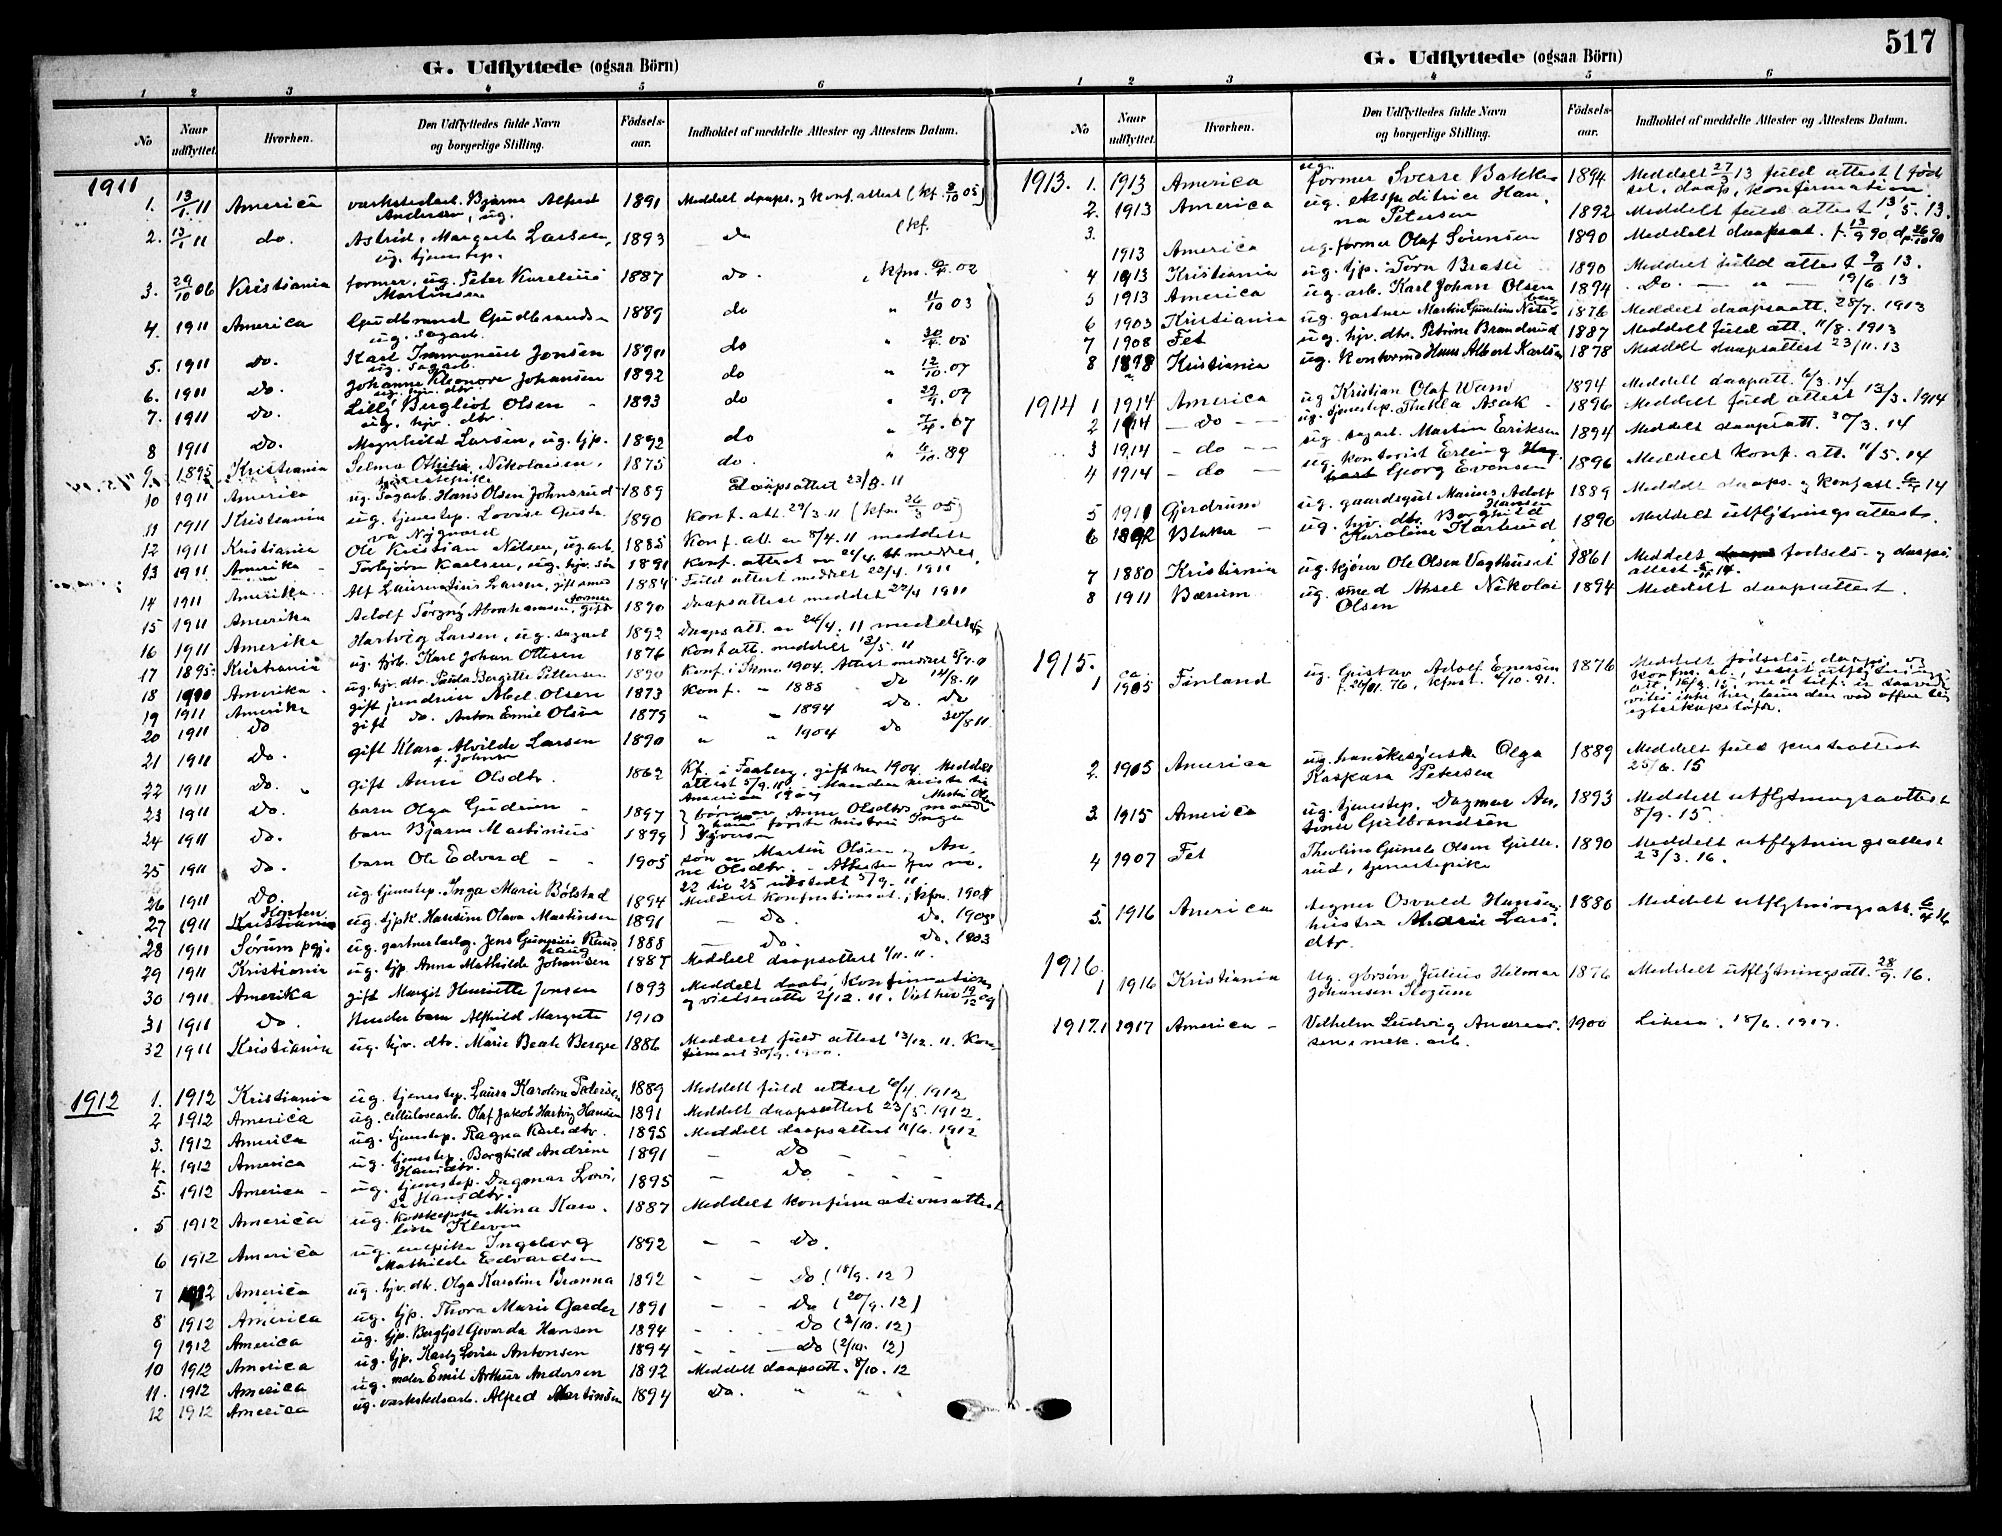 G. Udflyttede (ogsaa Börn)
1 2 3 4 5 6
No Naar udflyttet. Hvorhen. Den Udflyttedes fulde Navn og borgerlige Stilling. Födsels-aar. Indholdet af meddelte Attester og Attestens Datum.
1911
1. 13/1 11 America værkstedarb. Bjarne Alfred Andersen, ug. 1891 Meddelt daaps. og konf. attest (kf. 05)
2. 13/1 11 do. Astrid, Margarete Larsen, ug. tjenestep. 1893 do (kf.
3. 29/10 06 Kristiania former, ug. Peter Kurelius Martinsen 1887 do. " kfm. 02
4. 1911 America Gudbrand Gudbrandsen ug. sagarb. 1889 do " 11/10 03
5. 1911 Do. Karl Immanuel Jonsen ug. sagarb. 1890 do " 30/4 05
6. 1911 Do. Johanne Eleonore Johansen ug. hjv. dtr. 1892 do " 12/10 07
7. 1911 Do. Lilly Bergliot Olsen ug. hjv. dtr. 1893 do "
8 1911 Do. Magnhild Larsen, ug. tjp. 1892 do " 7/4 07
9. 1895 Kristiania Selma Othilie Nikolaisen, 1875 do. " 89
10 1911 America ug. Sagarb. Hans Olsen Johnsrud 1889 Daapsattest 11
11 1911 Kristiania ug. tjenestep. Lovise Gustava Nygaard 1890 Konf. att. 29/3. 11 (kfm 05)
12 1911 Kristiania Ole Kristian Nilsen, ug. arb. 1885 Konf. att. av 8/4. 11 meddelt
13 1911 Amerika Torbjørn Karlsen, ug. hjv. søn 1891 Konf. attest av 22/4. 11 meddelt.
14 1911 Amerika Alf Laurentius Larsen, gift smed 1884 Fuld attest meddelt 22/4. 1911
15 1911 Amerika Adolf Torgny Abrahamsen, gift former 1890 Daapsattest meddelt 22/4 1911
16 1911 Amerika Hartvig Larsen, ug. sagarb 1892 Daapsatt. av 26/4. 11 meddelt
17 1895 Kristiania ug. Karl Johan Ottesen 1876 Konf att. meddelt 13/5. 11
18 1910 Amerika ug. hjv. dtr. Paula Bergitte Pettersen 1890 Konf. i 1904. Attest meddelt
19 1911 Amerika gift Abel Olsen 1873 Konf. " 1888 Do 14/8. 11
20 1911 Do gift do. Anton Emil Olsen 1879 " " 1894 Do. Do
21 1911 Do. gift Klara Alvilde Larsen f. Johnsen 1890 " " 1904 Do 30/8 11
22 1911 Do. gift Anne Olsdtr. 1862 Kf. i Faaberg, gift her 1904. Meddelt attest 5/9. 11. Manden reiste til America 1907
23 1911 Do. barn Olga Gudrun 1897 børn av Anne Olsdtrs mand Martin Olsen
24 1911 Do. barn Bjarne Martinius 1899 og hans første hustru Inga Syversen
25 1911 Do. barn Ole Edvard 1905 søn av Martin Olsen og Anne Olsdtr. Attester for no. 22 til 25 utstedt 5/9. 11
26 1911 Do. ug. tjenestep. Inga Marie Bølstad 1894 Meddelt Konfirmationsatt., kfm. 1908
27 1911 Horten ug. tjpk. Hansine Olava Martinsen 1891 Do. Do. 1905
28 1911 Sørum pgj. ug. gartnerlærlg. Jens Gunerius Rundhaug 1888 Do. Do. 1903
29 1911 Kristiania ug. tjp. Anna Mathilde Johansen 1887 Meddelt daapsattest 11.
30 1911 Amerika gift Margit Henriette Jonsen 1893 Meddelt daabs, konfirmations og vielsesatte 2/12. 11. Viet her 19/12 09
31 1911 Do. Hendes barn Alfhild Margrete 1910
32 1911 Kristiania ug. hjv. dtr. Marie Beate Berger 1886 Meddelt fuld attest 13/12. 11. Konfirmert 30/9. 1900.
1912 1. 1912 Kristiania ug. tjenestep. Laura Karoline Pedersen 1889 Meddelt fuld attest 10/4. 1912
2 1912 America ug. cellulosearb. Olaf Jakob Hartvig Hansen 1891 Meddelt daapsattest 23/5. 1912.
3. 1912 America ug. tjenestep. Ragna Karlsdtr. 1895 Meddelt daapsattest 11/6. 1912
4. 1912 America ug. tjenestep. Borghild Andrine Hansdtr. 1891 Do
5. 1912 America ug. tjenestep. Dagmar Lovise Hansdtr. 1895 Do.
5 1912 America ug. Kokkepike Mina Karoline Kleven 1887 Meddelt konfirmationsattest
6 1912 America ug. Ingeborg Mathilde Edvardsen 1892 Do.
7 1912 America ug. hjv. dtr. Olga Karoline Brønna 1892 Do. (18/9. 12)
8 1912 America ug. tjp. Thora Marie Garder 1891 Do (20/9. 12)
9 1912 America ug. tjp. Bergljot Gvarda Hansen 1894 Do (2/10. 12)
10 1912 America ug. tjp. Karly Lovise Antonsen 1894 Do (2/10. 12)
11. 1912 America ug. maler Emil Arthur Andersen 1892 Meddelt daapsatt. 8/10. 12
12 1912 America ug. værkstedsarb. Alfred Martinsen 1894 Do. " " "
517
G. Udflyttede (ogsaa Börn)
1 2 3 4 5 6
No Naar udflyttet. Hvorhen. Den Udflyttedes fulde Navn og borgerlige Stilling. Födsels-aar. Indholdet af meddelte Attester og Attestens Datum.
1913. 1. 1913 America ug. former Sverre Bakke 1894 Meddelt 27/3 13 fuld attest (fødsel, daap, konfirmation.
2. 1913 America ug. ekspeditrice Hanna Petersen 1892 Meddelt fuld attest 13/5. 13.
3. 1913 America ug. former Olaf Sørensen 1890 Meddelt daapsat. f. 13/9 90 dp. 26/10 90
4 1913 Kristiania ug. tjp. Tora Braste 1890 Meddelt fuld attest 13.
5 1913 America ug. arb. Karl Johan Olsen 1894 Do. " 19/6. 13
6 1903 Kristiania ug. gartner Martin Gunelius 1876 Meddelt daapsatt. 28/7. 1913
7 1908 Fet ug. hjv. dtr. Petrine Branderud 1887 Meddelt fuld att. 11/8. 1913
8 1898 Kristiania ug. kontorist Hans Albert Karlsen 1878 Meddelt daapsattest 23/11. 13
1914 1 1914 America ug Kristian Olaf Wam 1894 Meddelt daapsatt. 6/3. 14
2 1914 do ug. tjenestep. Thekla Asak 1896 Meddelt fuld attest 13/3. 1914
3 1914 do ug. sagarb. Martin Eriksen 1894 Meddelt daapsatt. 30/3. 14
4 1914 do ug. kontorist Erling Georg Evensen 1896 Meddelt konf. att. 11/5. 14
5 1911 Gjerdrum ug. gaardsgut Marius Adolf Hansen 1889 Meddelt daaps. og konfatt. 14
6 1892 Blaker ug. hjv. dtr. Borghild Karoline Karlsrud 1890 Meddelt utflytningsattest.
7 1880 Kristiania ug. kjører Ole Olsen Vagthuset 1861 Meddelt fødsels- og daapsattest 14.
8 1911 Bærum ug. smed Aksel Nikolai Olsen 1894 Meddelt daapsattest.
1915. 1 ca 1905 Finland ug. Gustav Adolf Enersen f. 76, kfmt. 4/10. 91. 1876 Meddelt fødsels-, daaps- og Konfm. at., samt utflytningsatt, 16/9. 15, med tilf. at saavidt vites ikke her, løser den ved offentlig egteskapsløfte.
2. 1905 America ug. hanskesyerske Olga Kaspara Petersen 1889 Meddelt fuld attest 25/6. 15
3. 1915 America ug. tjenestep. Dagmar Antonie Gulbrandsen 1893 Meddelt utflytningsattest 8/9. 15.
4 1907 Fet Theoline Gunelie Olsen Gullerud, tjenestepike 1890 Meddelt utflytningsattest 23/3. 16.
5. 1916 America Osvald Hansens hustru Marie Larsdtr. 1880 Meddelt utflytningsatt. 6/4 16
1916. 1 1916 Kristiania Ug. Julius Hilmar Johansen 1876 Meddelt utflytningsatt. 28/9. 16.
1917. 1 1917 America Vilhelm Ludvig Andreassen, mek. arb. 1900 18/6. 1917.